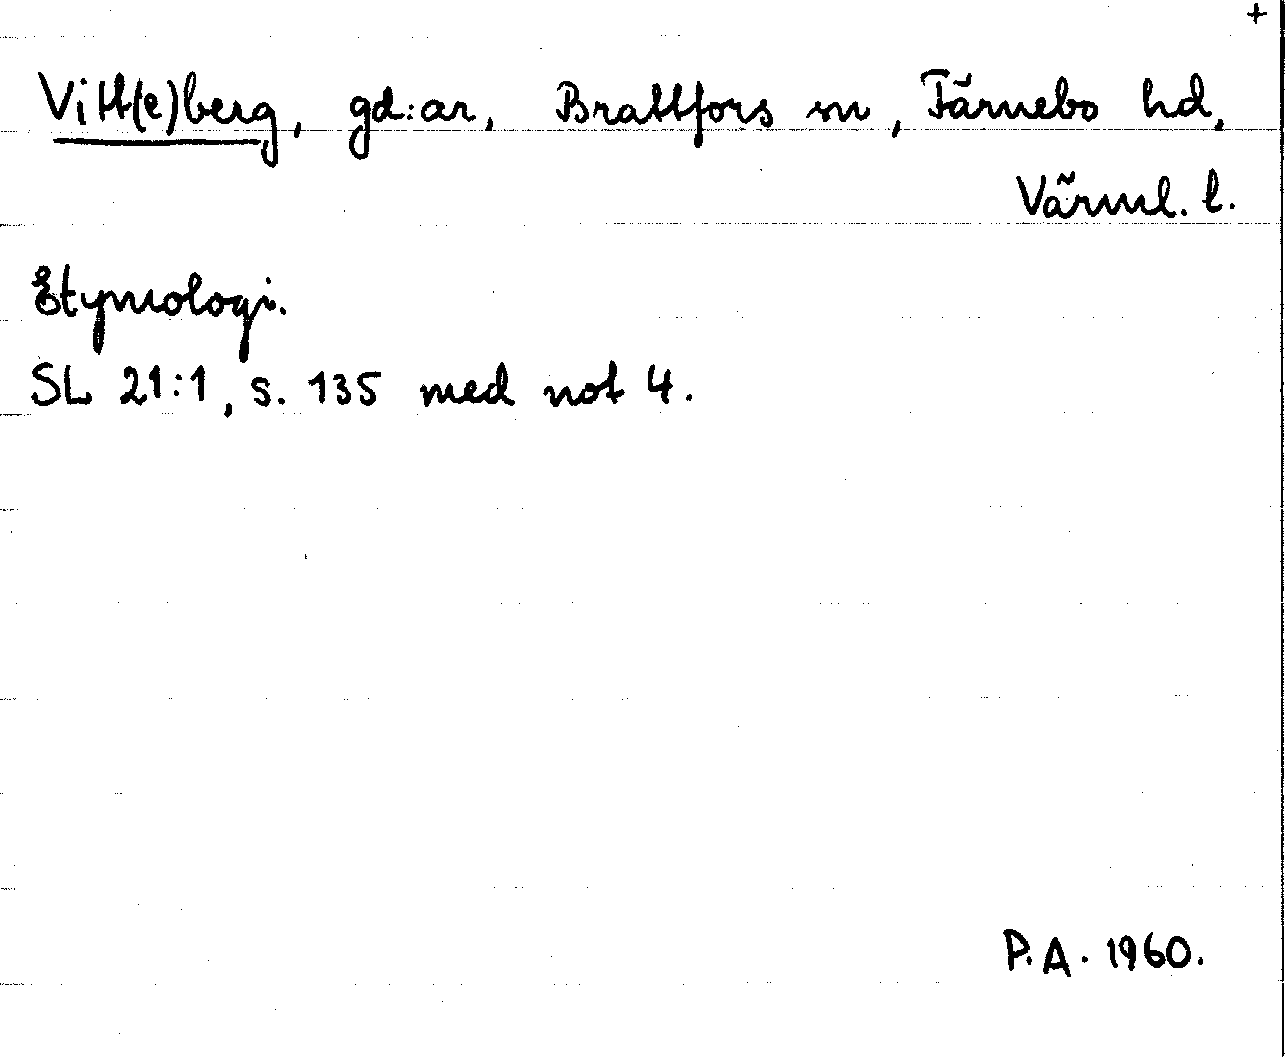 +
Vitt(e)berg, gd:ar, Brattfors sn, Färnebo hd,
Värml. l.
Etymologi.
SL 21:1, s. 135 med not 4.
P.A. 1960.